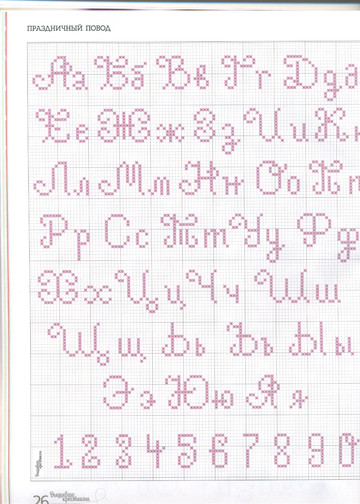 ПРАЗДНИЧНЫЙ ПОВОД
Аа Бб Вв Гг Ддд
Ее Жж Зз Ии Кк
Лл Мм Нн Оо Пп
Рр Сс Тт Уу Фф
Хх Цц Чч Шш
Щщ Ьь Ъъ Ыы
Ээ Юю Яя
1 2 3 4 5 6 7 8 9 0
26